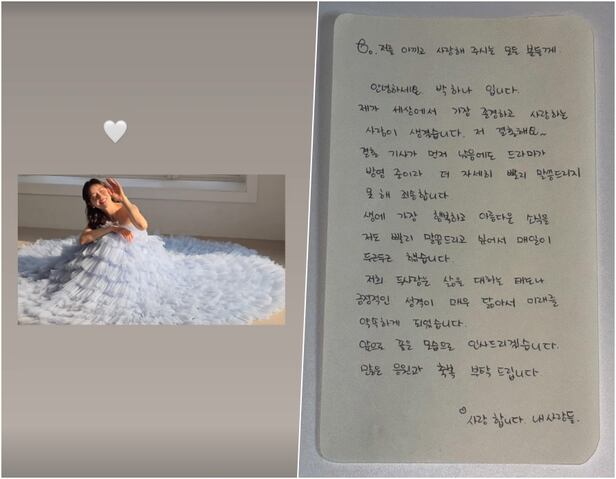 To. 저를 아끼고 사랑해 주시는 모든 분들께.
안녕하세요 박하나 입니다.
제가 세상에서 가장 존경하고 사랑하는
사람이 생겼습니다. 저 결혼해요~
결혼 기사가 먼저 났음에도 드라마가
방영 중이라 더 자세히 빨리 말씀드리지
못 해 죄송합니다
생에 가장 행복하고 아름다운 소식을
저도 빨리 말씀드리고 싶어서 매일이
두근두근 했습니다.
저희 두사람은 삶을 대하는 태도나
긍정적인 성격이 매우 닮아서 미래를
약속하게 되었습니다.
앞으로 좋은 모습으로 인사드리겠습니다.
많은 응원과 축복 부탁 드립니다.
사랑 합니다. 내사람들.